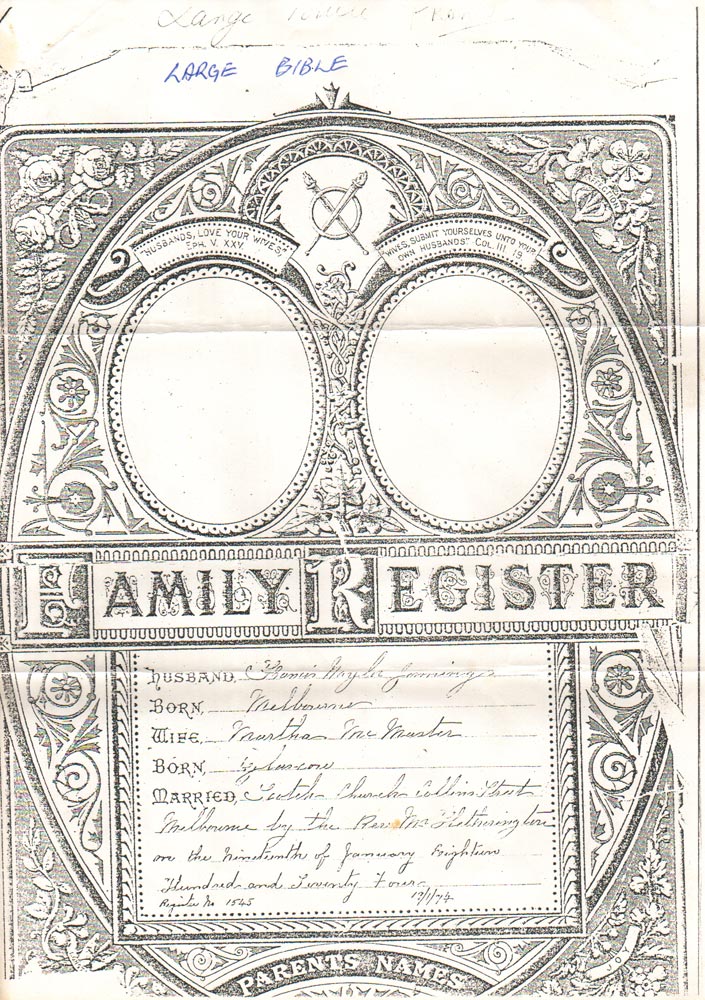 Large Bible
LARGE BIBLE
"HUSBANDS, LOVE YOUR WIVES,"
EPH. V. XXV.
"WIVES, SUBMIT YOURSELVES UNTO YOUR
OWN HUSBANDS" COL. III. 18.
FAMILY REGISTER
HUSBAND, Thomas Naylor Jennings
BORN, Melbourne
WIFE, Martha McMaster
BORN, Glascow
MARRIED, Scotch Church Collins Street
Melbourne by the Rev Mr Hetherington
on the Nineteenth of January Eighteen
Hundred and Seventy Four
Register No 1545
JOY
PARENTS NAMES